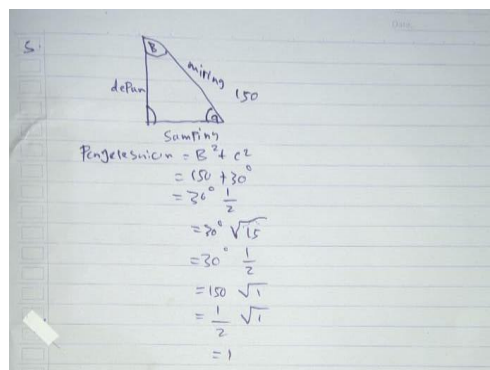 5.
B
depan
miring
150
a
Samping
Pengelesaian = B² + c²
= 150 + 30°
= 30° 1/2
= 30° √15
= 30° 1/2
= 150 √1
= 1/2 √1
= 1